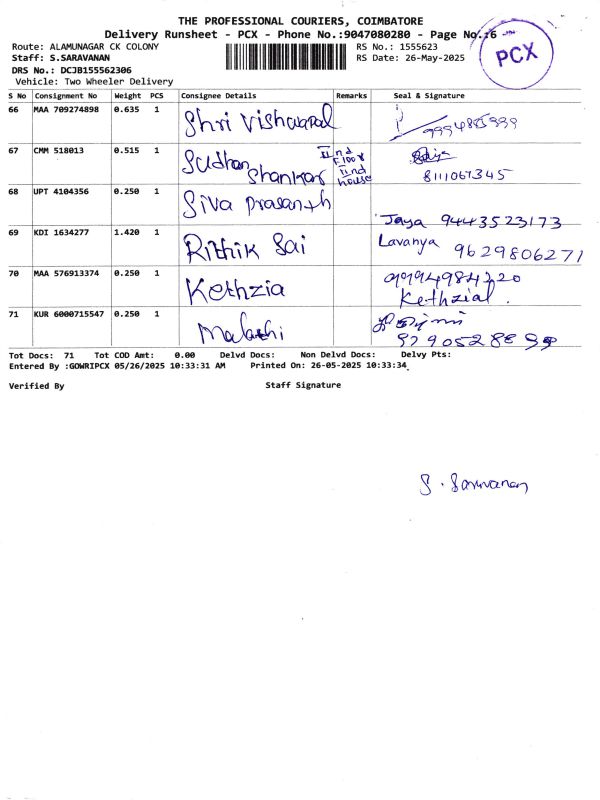 THE PROFESSIONAL COURIERS, COIMBATORE
Delivery Runsheet - PCX - Phone No.:9047080280 - Page No.:6
Route: ALAMUNAGAR CK COLONY RS No.: 1555623
Staff: S.SARAVANAN RS Date: 26-May-2025
DRS No.: DCJB155562306
Vehicle: Two Wheeler Delivery
PCX
S No Consignment No Weight PCS Consignee Details Remarks Seal & Signature
66 MAA 709274898 0.635 1 Shri Vishwapal
67 CMM 518013 0.515 1 Sudhan Shankar IInd Floor IInd house 8111067345
68 UPT 4104356 0.250 1 Siva prasanth Jaya 9443523173
69 KDI 1634277 1.420 1 Rithik Sai Lavanya 9629806271
70 MAA 576913374 0.250 1 Kethzia Kethzial.
71 KUR 6000715547 0.250 1 Malathi
Tot Docs: 71 Tot COD Amt: 0.00 Delvd Docs: Non Delvd Docs: Delvy Pts:
Entered By :GOWRIPCX 05/26/2025 10:33:31 AM Printed On: 26-05-2025 10:33:34
Verified By Staff Signature
S. Saravanan